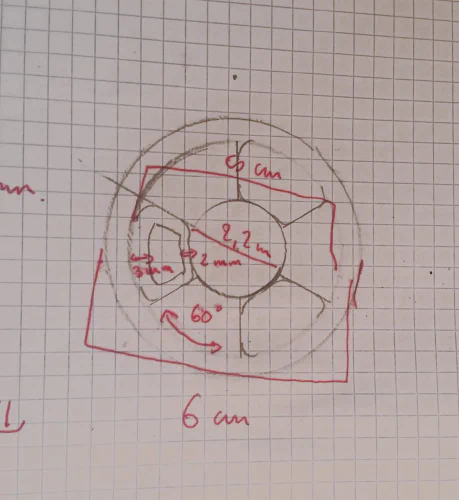 m.
cm
2,2 m
3mm
2mm
60°
6 cm